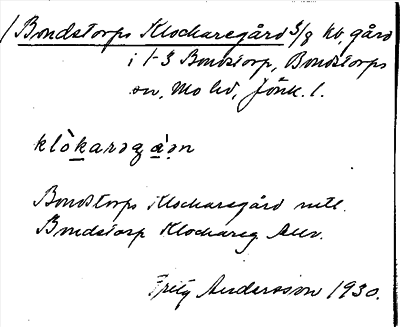 / Bondstorps Klockaregård 3/8 kb. gård
i 1-3 Bondstorp, Bondstorps
sn, Mo hd, Jönk. l.
Bondstorps Klockaregård mtl.
Bondstorp Klockareg.
Fritz Andersson 1930.